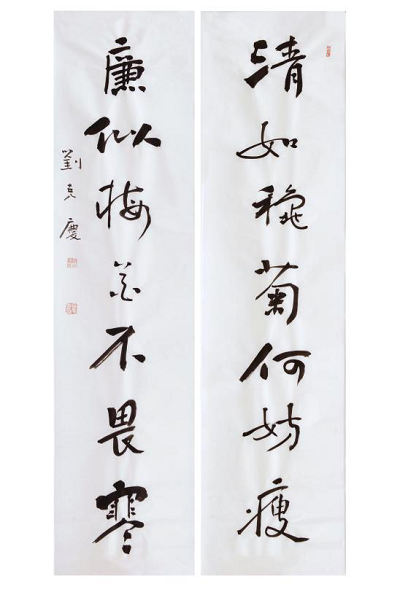 清如秋菊何妨瘦
廉似梅花不畏寒
劉克慶